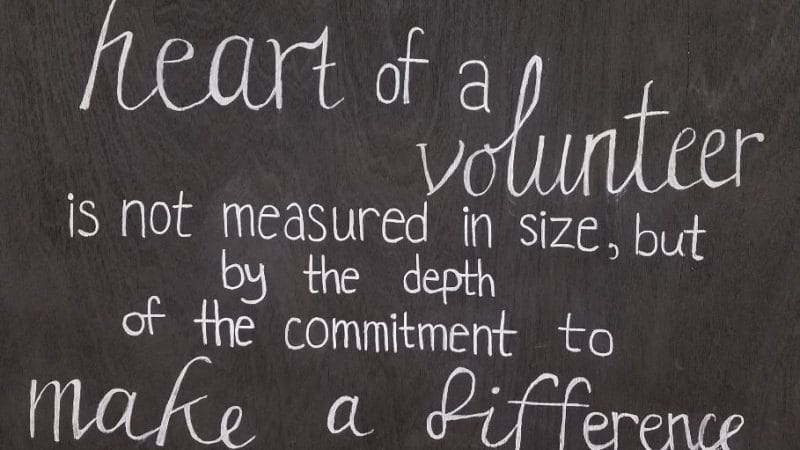 heart of a
volunteer
is not measured in size, but
by the depth
of the commitment to
make a difference